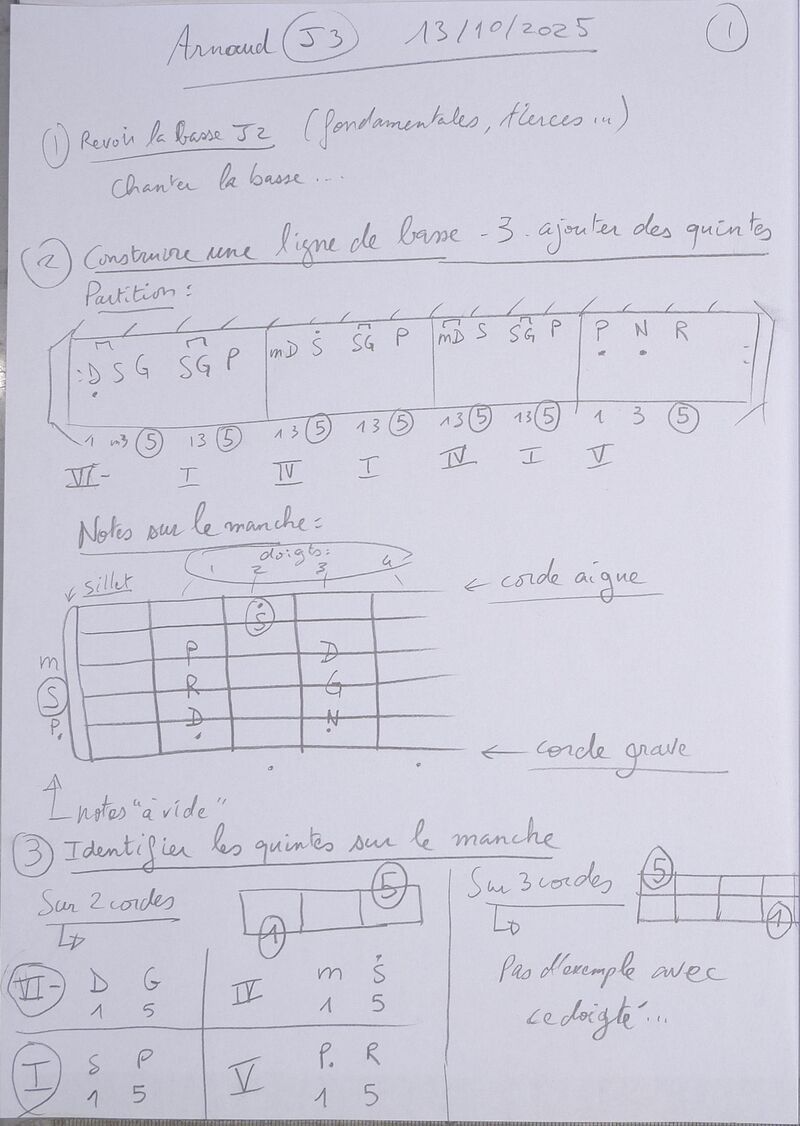 Arnaud J3 13/10/2025 1
1 Revoir la basse J2 (fondamentales, tierces...)
Chanter la basse...
2 Construire une ligne de basse - 3 - ajouter des quintes
Partition :
:D S G SG P mD Ṡ SG P mD S SG P P N R :
1 m3 5 13 5 13 5 13 5 13 5 13 5 1 3 5
VI- I IV I IV I V
Notes sur le manche :
doigts :
1 2 3 4
sillet
← corde aigue
Ṡ
m P D
S R G
P. D N
← corde grave
notes "à vide"
3 Identifier les quintes sur le manche
Sur 2 cordes 5 1
Sur 3 cordes 5 1
VI- D G IV m Ṡ
1 5 1 5
Pas d'exemple avec
ce doigté...
I S P V P. R
1 5 1 5